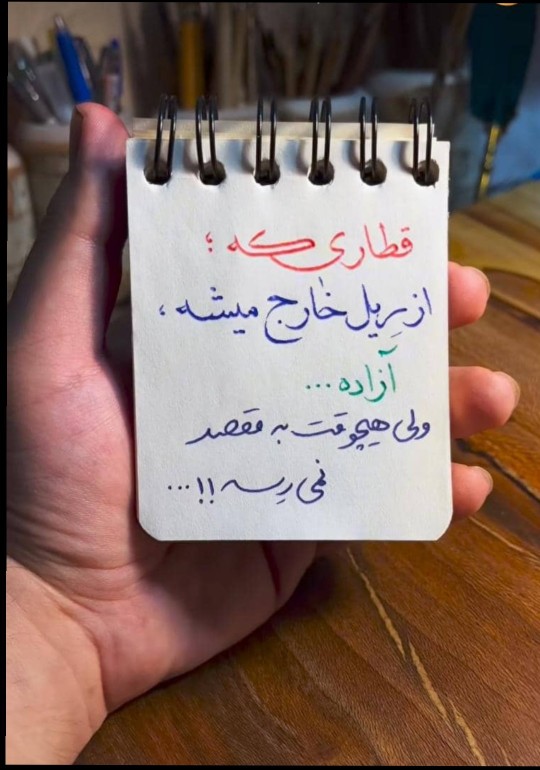 قطاری که ؛
از ریل خارج میشه ،
آزاده ...
ولی هیچوقت به مقصد
نمی رسه !! ...